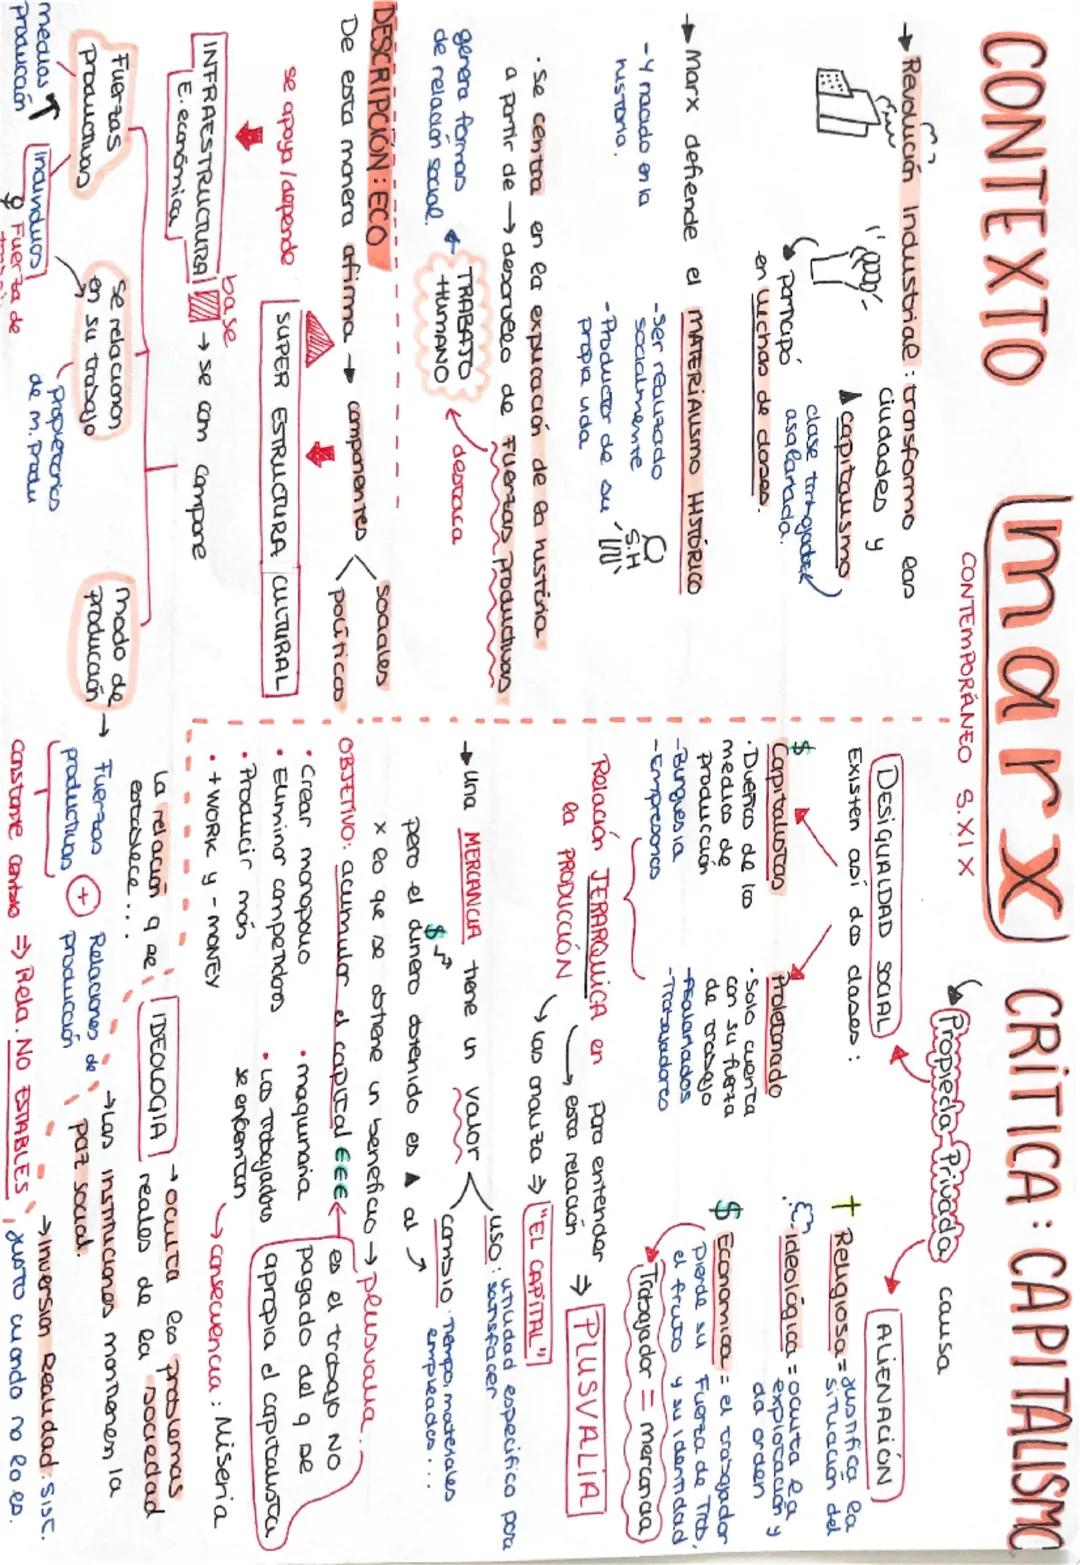 CONTEXTO
marx
CONTEMPORÁNEO S. XIX
CRÍTICA: CAPITALISMO
→ Revolución Industrial: transformo las
ciudades y
▲ capitalismo
clase trabajadora
asalariada.
participó
en luchas de clases.
→ Marx defiende el MATERIALISMO HISTÓRICO
- Y nacido en la
historia.
- Ser realizado
socialmente
- Productor de su
propia vida
S.H
· Se centra en la explicación de la historia
a partir de → desarrollo de Fuerzas productivas
destaca
TRABAJO
HUMANO
genera formas
de relación social.
DESCRIPCIÓN: ECO
De esta manera afirma → componentes
sociales
políticos
SUPER ESTRUCTURA CULTURAL
se apoya / depende
INFRAESTRUCTURA
E. económica
base
→ se con compone
Fuerzas
productivas
Se relacionan
en su trabajo
modo de →
producción
medios
producción
Individuos
Fuerza de
propietarios
de m. Produ
Fuerzas
productivas
+
Relaciones de
producción
constante cambio ⇒ Rela. NO ESTABLES
justo cuando no lo es.
Propieda-Privada causa
DESIGUALDAD SOCIAL
Existen así dos clases:
$
Capitalistas
· Dueños de los
medios de
producción
- Burguesía
- Empresarios
Proletariado
· Solo cuenta
con su fuerza
de trabajo
- Asalariados
- Trabajadores
ALIENACIÓN
† Religiosa = justifica la
situación del
ideológica = oculta la
explotación y
da orden
$ Economica = el trabajador
pierde su Fuerza de Trab,
el fruto y su identidad
Trabajador = mercancia
Relación JERARQUICA en
la PRODUCCIÓN
para entender
esta relación ⇒ PLUSVALIA
Las analiza ⇒ "EL CAPITAL"
→ Una MERCANCIA tiene un valor
uso: utilidad especifica para
satisfacer
cambio: Tiempo, materiales
empleados...
pero el dinero obtenido es ▲ al
$
x lo que se obtiene un beneficio → plusvalia.
OBJETIVO: acumular el capital €€€
es el trabajo NO
pagado del q se
apropia el capitalista
· Crear monopolio
· Eliminar competidores
· Producir más
· + WORK y - MONEY
· maquinaria
· Los trabajadores
se enfrentan
→ consecuencia: Miseria
La relación q se
establece...
IDEOLOGIA
→ oculta los problemas
reales de la sociedad
→ Las instituciones mantienen la
paz social.
→ inversión Realidad: Sist.